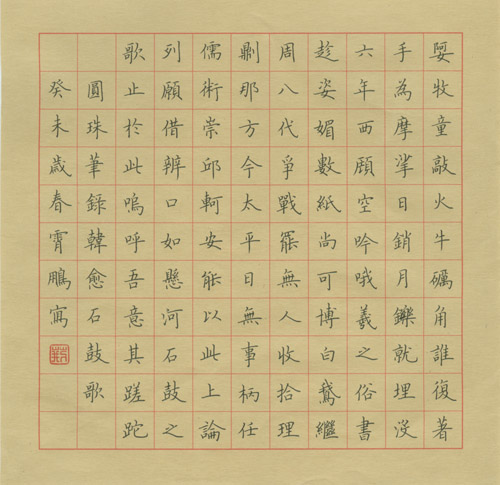 娿牧童敲火牛礪角誰復著
手為摩挲日銷月鑠就埋沒
六年西顧空吟哦羲之俗書
趁姿媚數紙尚可博白鵝繼
周八代爭戰罷無人收拾理
則那方今太平日無事柄任
儒術崇邱軻安能以此上論
列願借辨口如懸河石鼓之
歌止於此嗚呼吾意其蹉跎
圓珠筆録韓愈石鼓歌
癸未歲春霄鵬寫